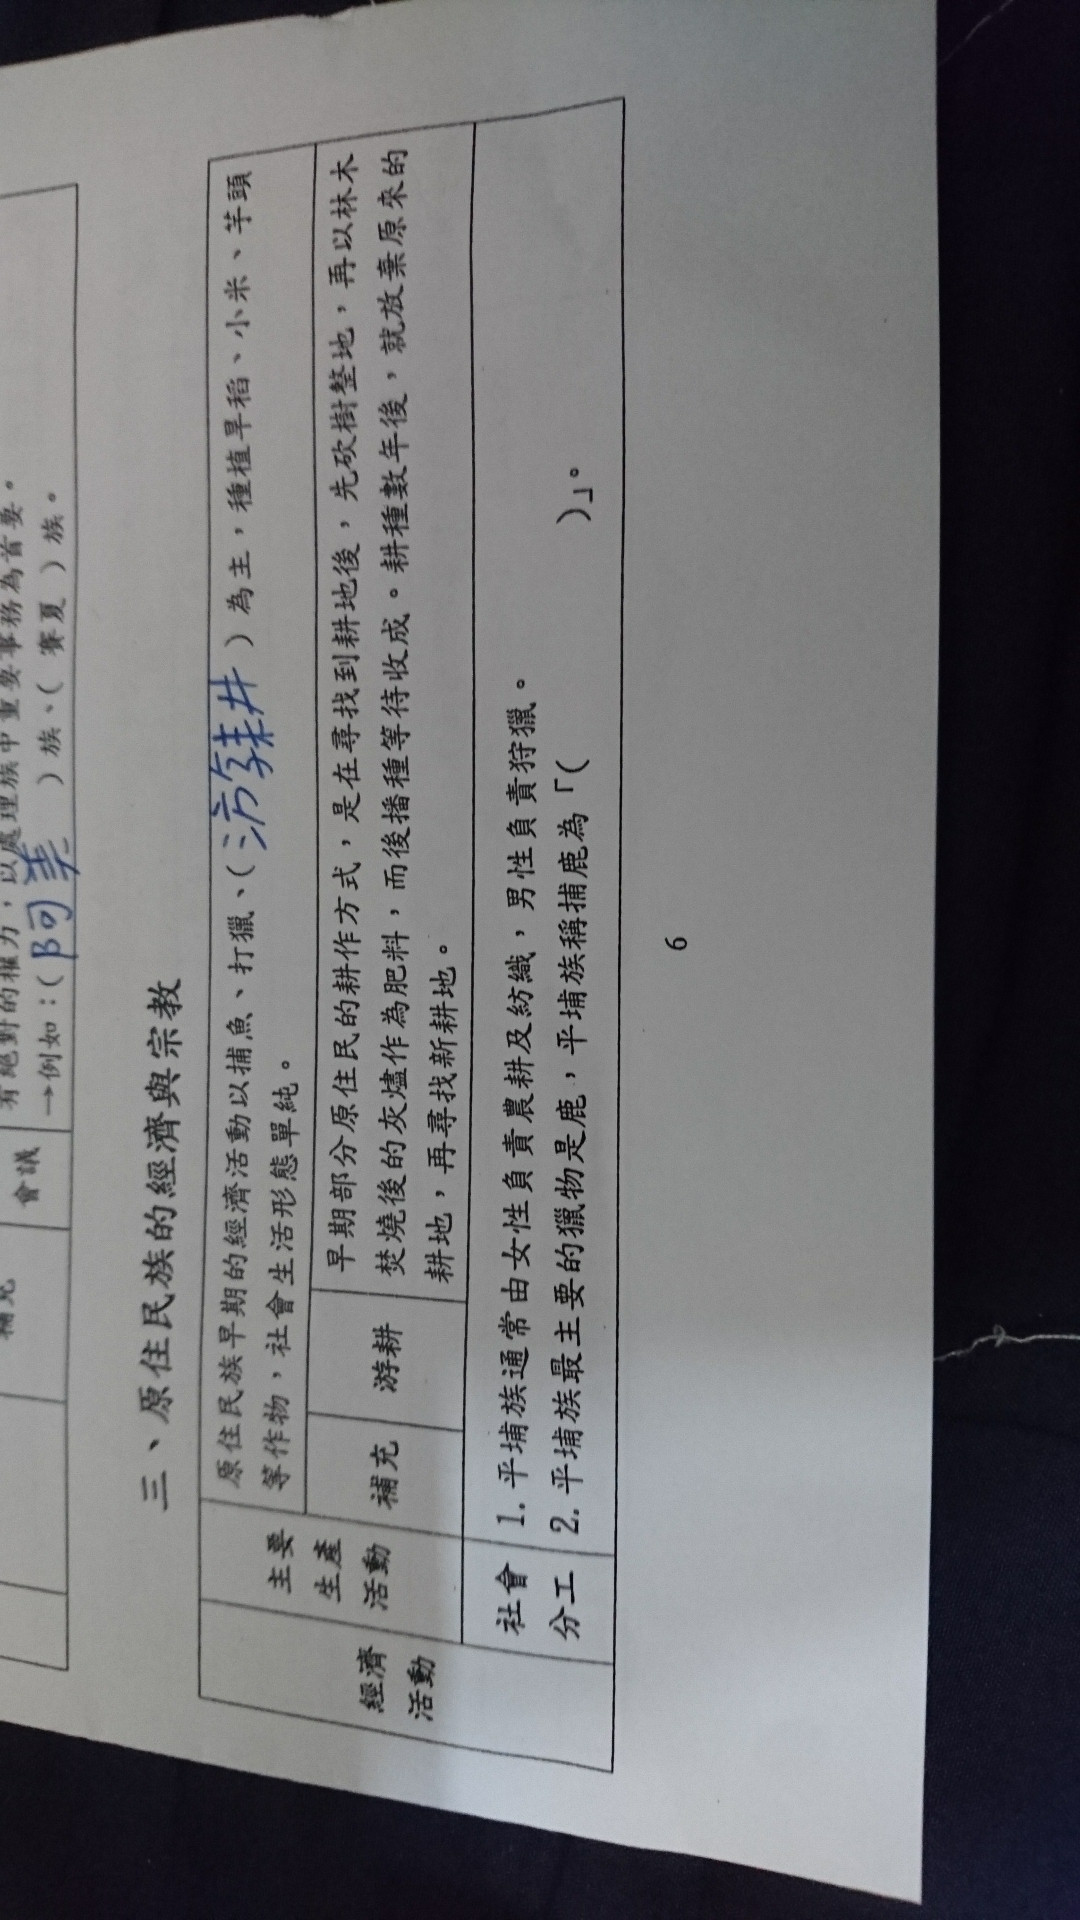 有絕對的權力，以處理族中重要事務為首要。
補充 會議
→例如：（阿美）族、（賽夏）族。
三、原住民族的經濟與宗教
原住民族早期的經濟活動以捕魚、打獵、（游耕）為主，種植旱稻、小米、芋頭
等作物，社會生活形態單純。
主要
生產
活動
補充
游耕
早期部分原住民的耕作方式，是在尋找到耕地後，先砍樹整地，再以林木
焚燒後的灰燼作為肥料，而後播種等待收成。耕種數年後，就放棄原來的
耕地，再尋找新耕地。
經濟
活動
社會
分工
1. 平埔族通常由女性負責農耕及紡織，男性負責狩獵。
2. 平埔族最主要的獵物是鹿，平埔族稱捕鹿為「（ ）」。
6